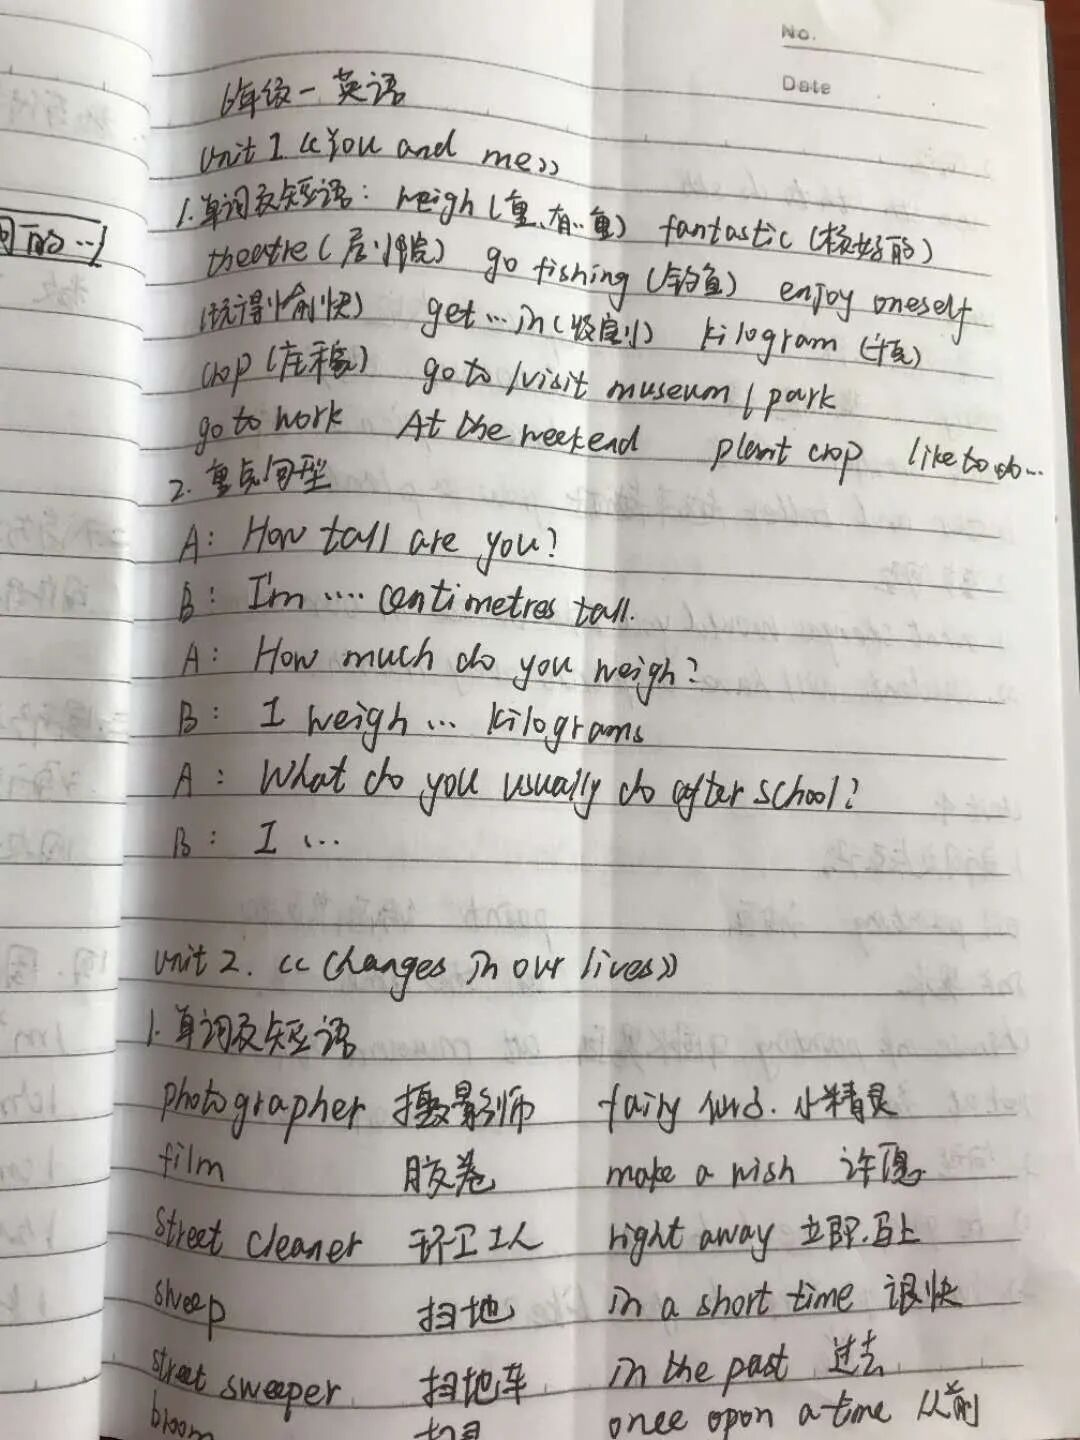 No.
Date
6年级一英语
Unit 1 《You and me》
1.单词及短语: weigh (重、有…重) fantastic (极好的)
theatre (居刂院) go fishing (钓鱼) enjoy oneself
(玩得愉快) get … in (收割) kilogram (千克)
crop (庄稼) go to / visit museum / park
go to work At the weekend plant crop like to do…
2. 重点句型
A: How tall are you?
B: I'm .... centimetres tall.
A: How much do you weigh?
B: I weigh ... kilograms
A: What do you usually do after school?
B: I ...
unit 2. 《Changes in our lives》
1.单词及短语
photographer 摄影师 fairy 小精灵
film 胶卷 make a wish 许愿
street cleaner 环卫工人 right away 立即.马上
sweep 扫地 in a short time 很快
street sweeper 扫地车 in the past 过去
broom once upon a time 从前